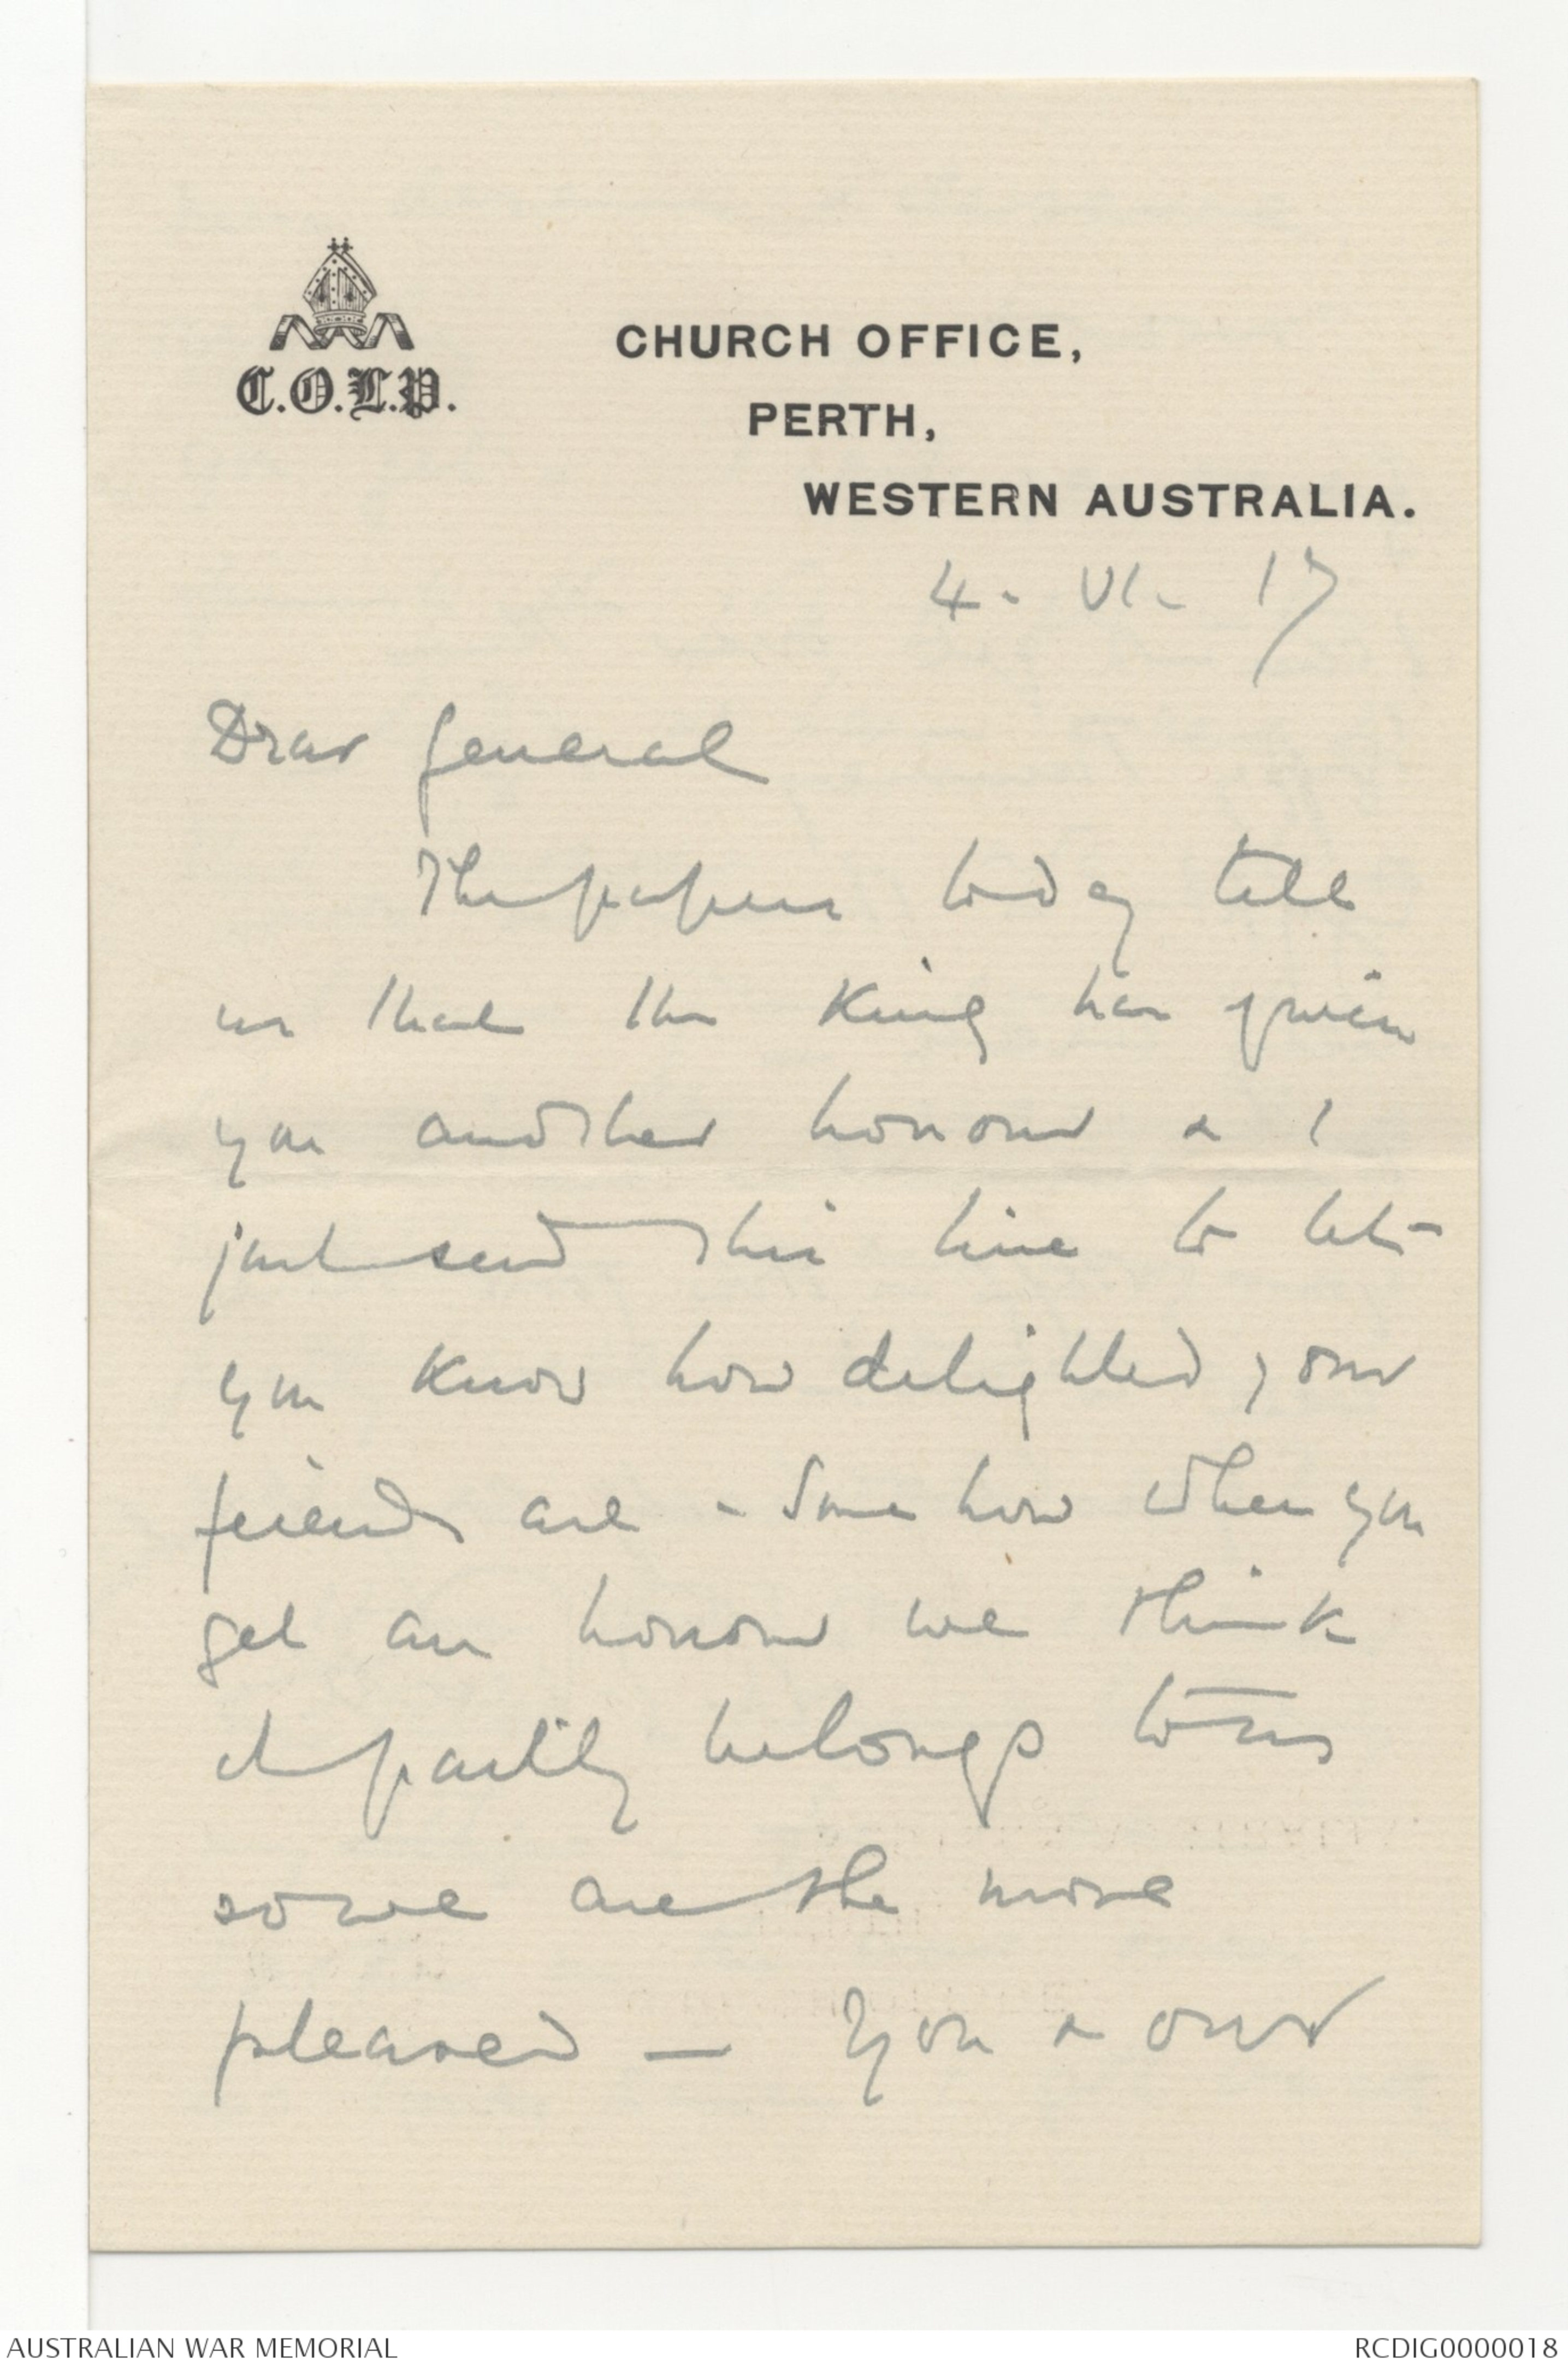 C.O.L.P.
CHURCH OFFICE,
PERTH,
WESTERN AUSTRALIA.
4. VI. 17
Dear General
The papers today tell
us that the King has given
you another honour & I
just send this line to let
you know how delighted your
friends are - Somehow when you
get an honour we think
it partly belongs to us
so we are the more
pleased — You & our
AUSTRALIAN WAR MEMORIAL
RCDIG0000018